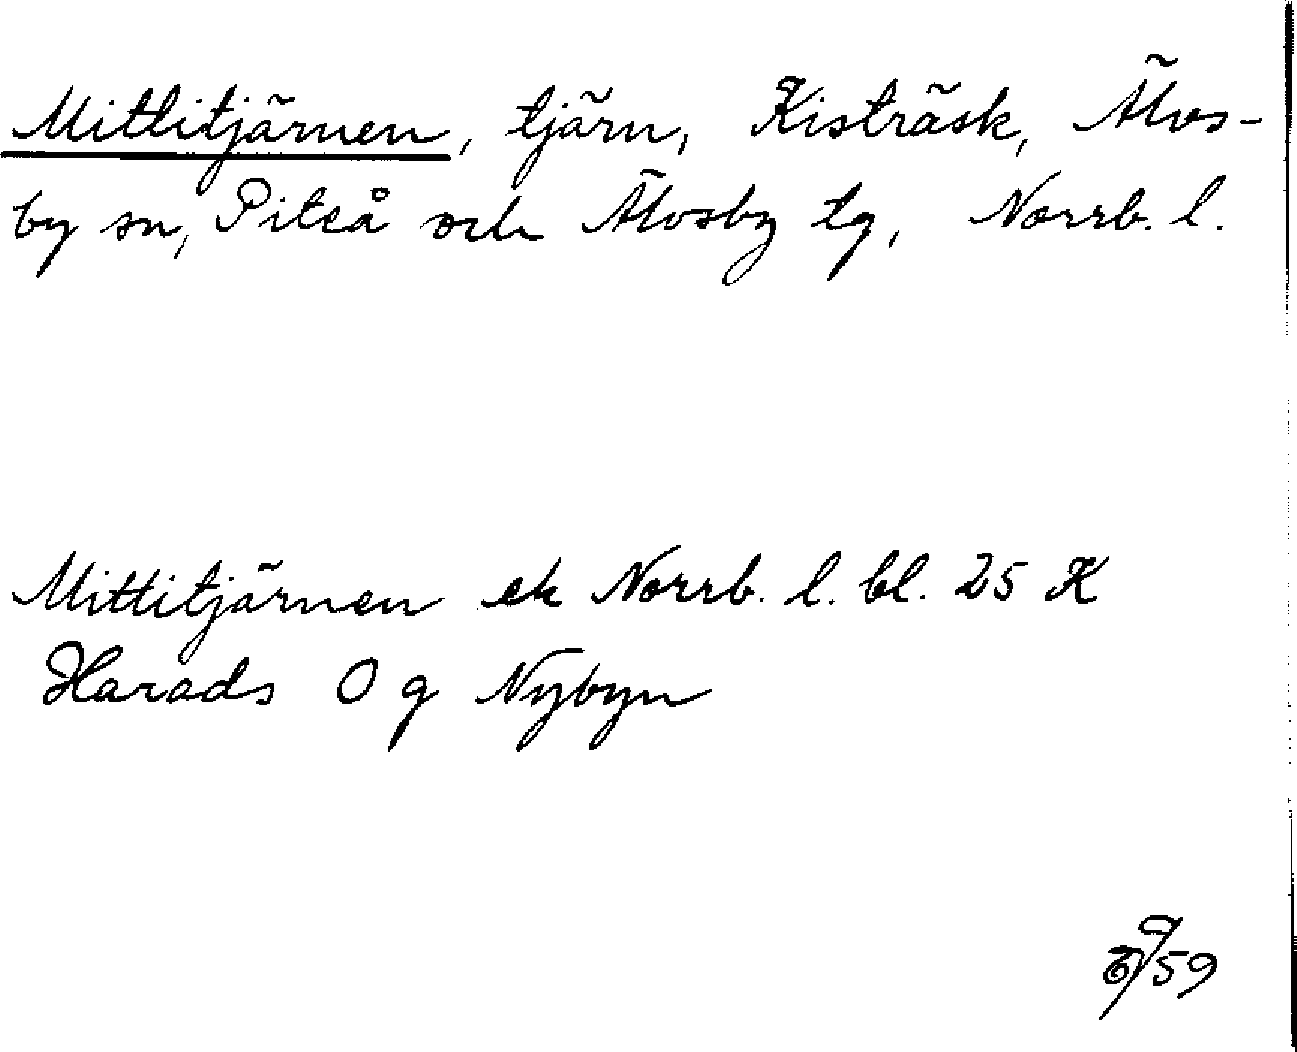 Mittitjärnen, tjärn, Kisträsk, Älvs-
by sn, Piteå och Älvsby tg, Norrb. l.
Mittitjärnen ek Norrb. l. bl. 25 K
Harads O g Nybyn
59